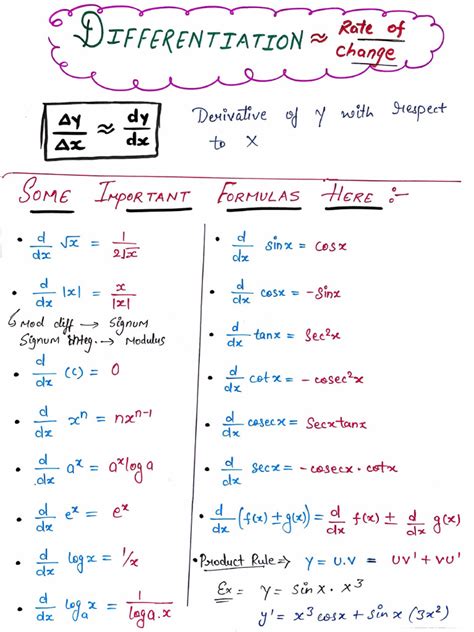 DIFFERENTIATION ≈ Rate of change
Δy/Δx ≈ dy/dx
Derivative of Y with respect to X
SOME IMPORTANT FORMULAS HERE :-
• d/dx √x = 1/2√x
• d/dx |x| = x/|x|
↳ Mod diff → Signum
Signum integ. → Modulus
• d/dx (c) = 0
• d/dx xⁿ = nxⁿ⁻¹
• d/dx aˣ = aˣ log a
• d/dx eˣ = eˣ
• d/dx log x = 1/x
• d/dx logₐx = 1/log a.x
• d/dx sinx = cosx
• d/dx cosx = -sinx
• d/dx tanx = Sec²x
• d/dx cotx = -cosec²x
• d/dx cosecx = Secxtanx
• d/dx secx = -cosecx·cotx
• d/dx (f(x) ± g(x)) = d/dx f(x) ± d/dx g(x)
• Product Rule ⇒ Y = U.V = UV' + VU'
Ex = Y = Sinx · x³
y' = x³cosx + sinx (3x²)